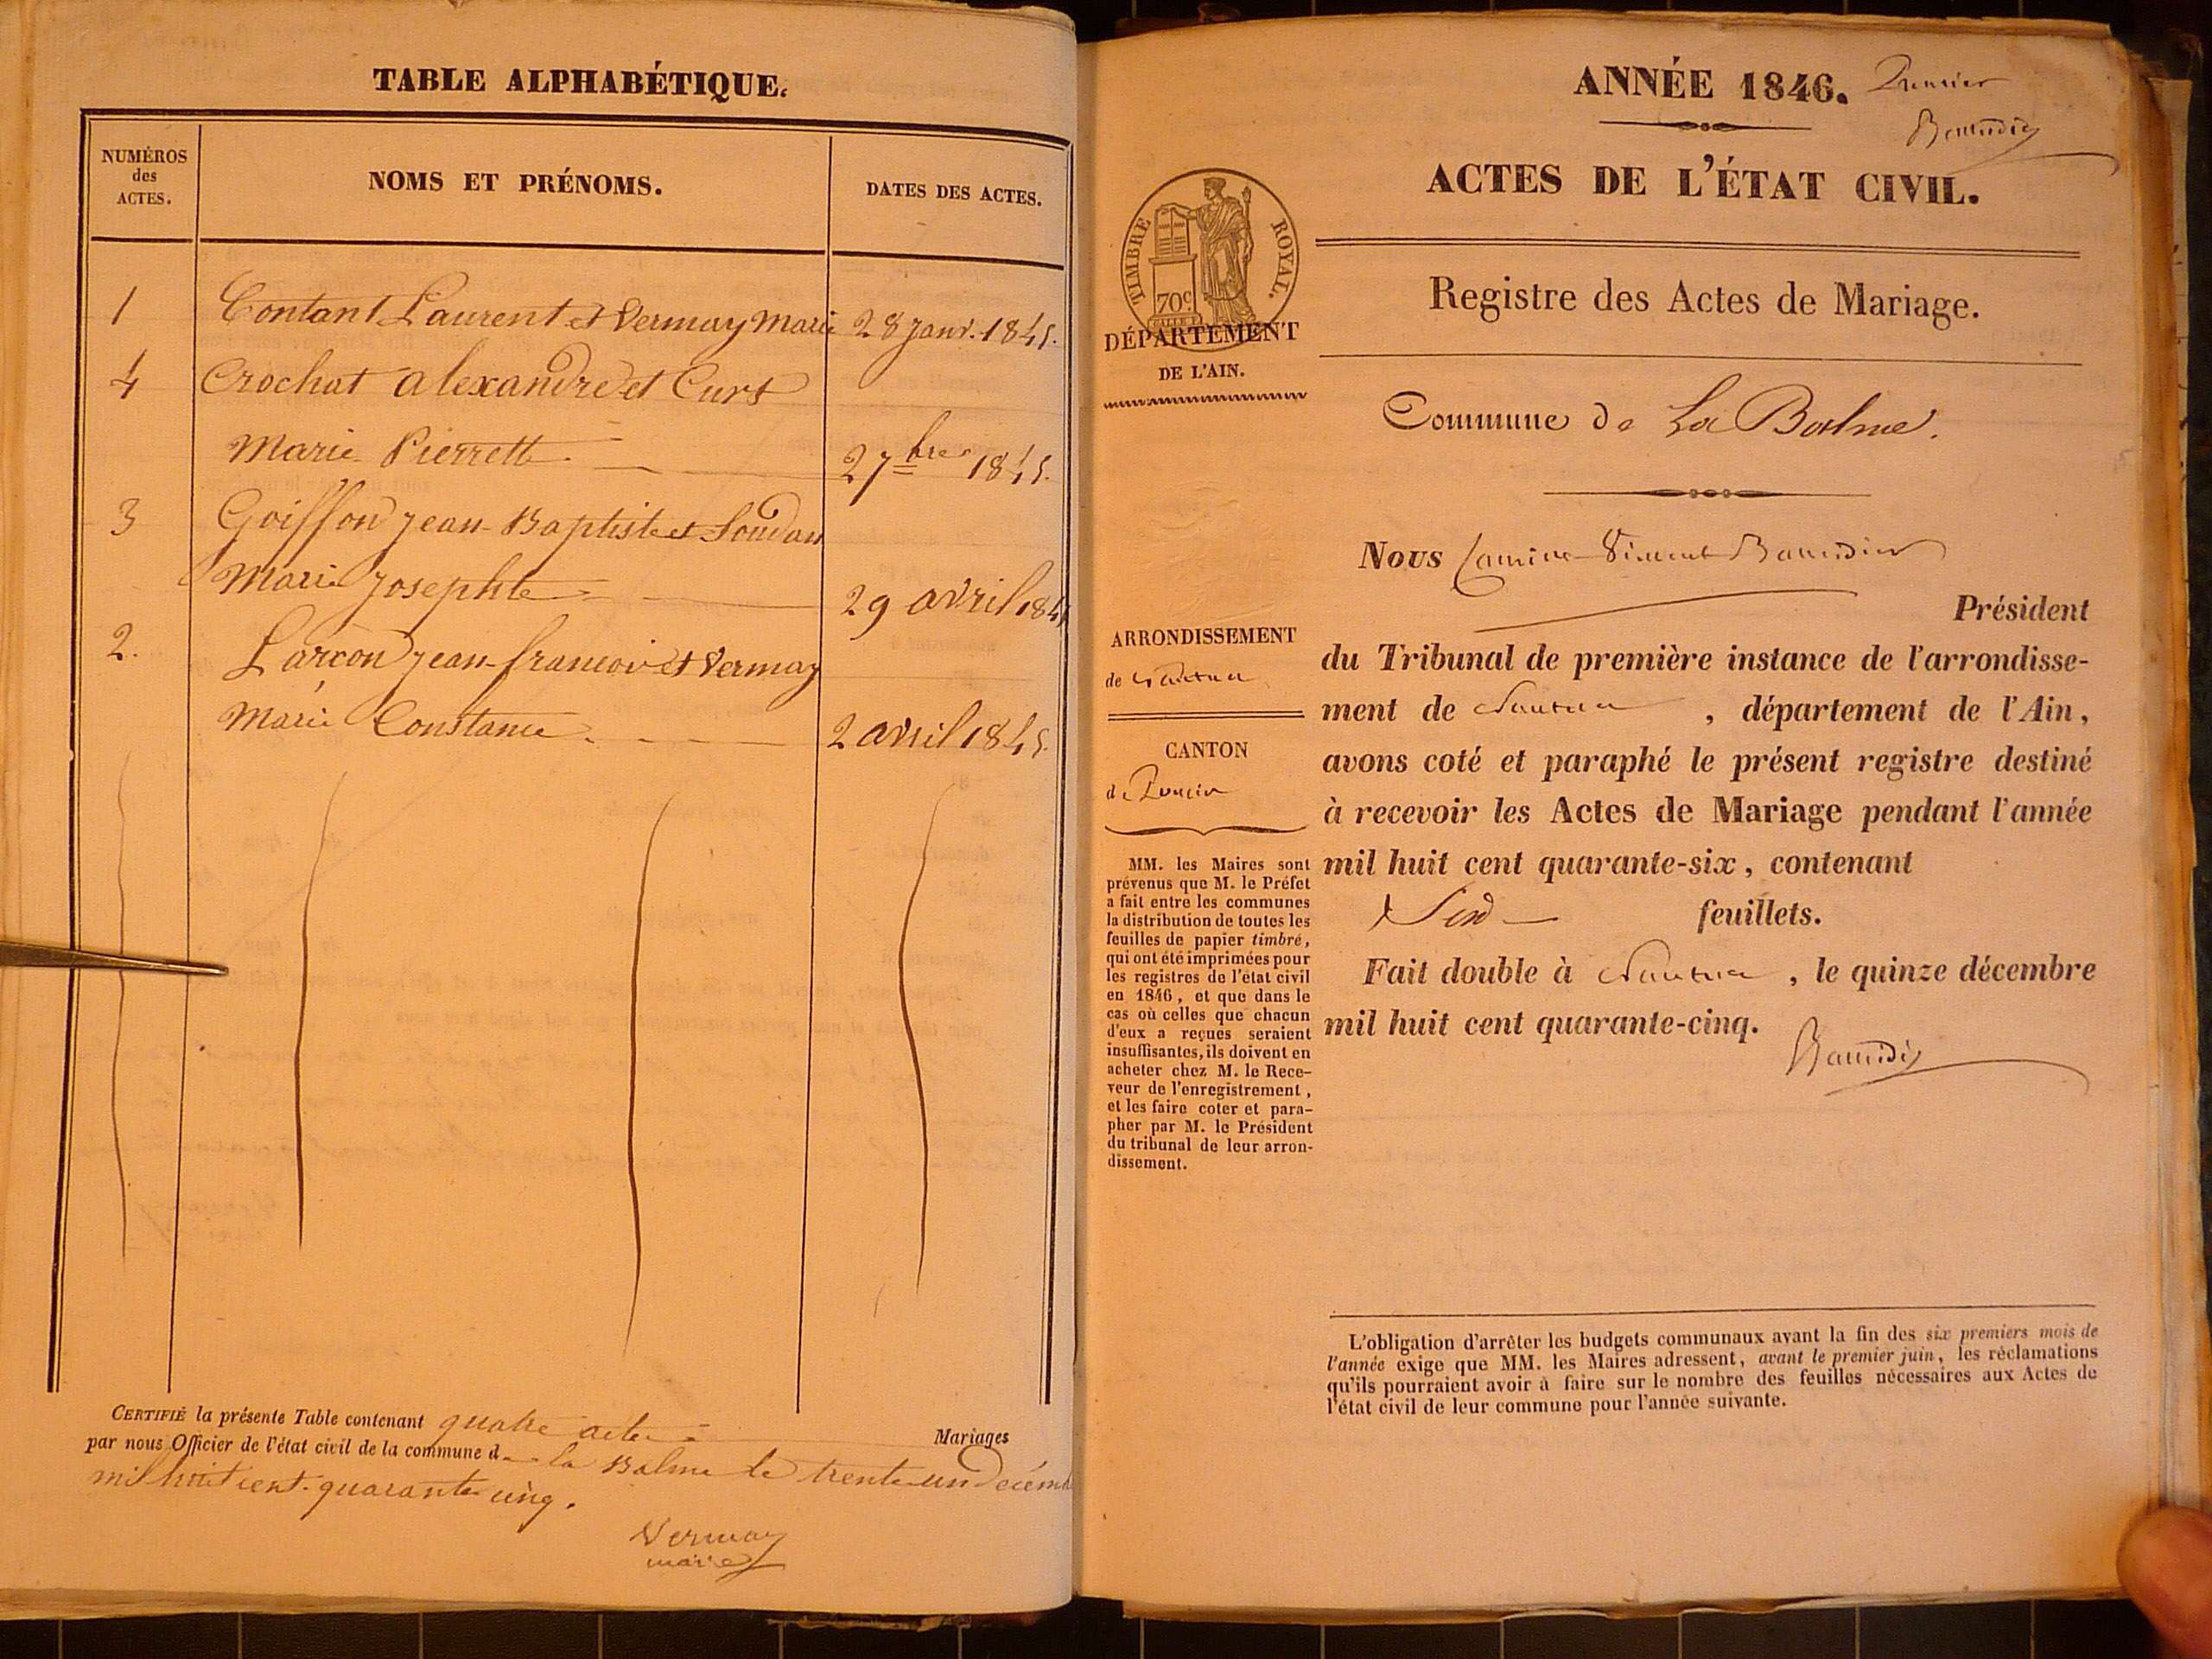 TABLE ALPHABÉTIQUE.
NUMÉROS
des
ACTES.
NOMS ET PRÉNOMS.
DATES DES ACTES.
1 Contant Laurent et Vermay Marie 28 Janv. 1845.
4 Crochat alexandre et Curt
Marie Pierrette 27 bre 1845.
3 Goiffon Jean-Baptiste et Soudan
Marie Josephte 29 avril 1845
2. Larçon Jean-francois et Vermay
Marie Constance. 2 avril 1845.
CERTIFIÉ la présente Table contenant quatre actes Mariages
par nous Officier de l'état civil de la commune de la Balme le trente-un Décemb
mil huit cent quarante cinq.
Vermay
maire
ANNÉE 1846. Premier
ACTES DE L'ÉTAT CIVIL.
TIMBRE ROYAL.
70c
DÉPARTEMENT
DE L'AIN.
Registre des Actes de Mariage.
Commune de La Balme.
ARRONDISSEMENT
de Nantua
CANTON
de Poncin
MM. les Maires sont
prévenus que M. le Préfet
a fait entre les communes
la distribution de toutes les
feuilles de papier timbré,
qui ont été imprimées pour
les registres de l'état civil
en 1846, et que dans le
cas où celles que chacun
d'eux a reçues seraient
insuffisantes, ils doivent en
acheter chez M. le Rece-
veur de l'enregistrement,
et les faire coter et para-
pher par M. le Président
du tribunal de leur arron-
dissement.
Nous Vincent
Président
du Tribunal de première instance de l'arrondisse-
ment de Nantua, département de l'Ain,
avons coté et paraphé le présent registre destiné
à recevoir les Actes de Mariage pendant l'année
mil huit cent quarante-six, contenant
feuillets.
Fait double à Nantua, le quinze décembre
mil huit cent quarante-cinq.
L'obligation d'arrêter les budgets communaux avant la fin des six premiers mois de
l'année exige que MM. les Maires adressent, avant le premier juin, les réclamations
qu'ils pourraient avoir à faire sur le nombre des feuilles nécessaires aux Actes de
l'état civil de leur commune pour l'année suivante.